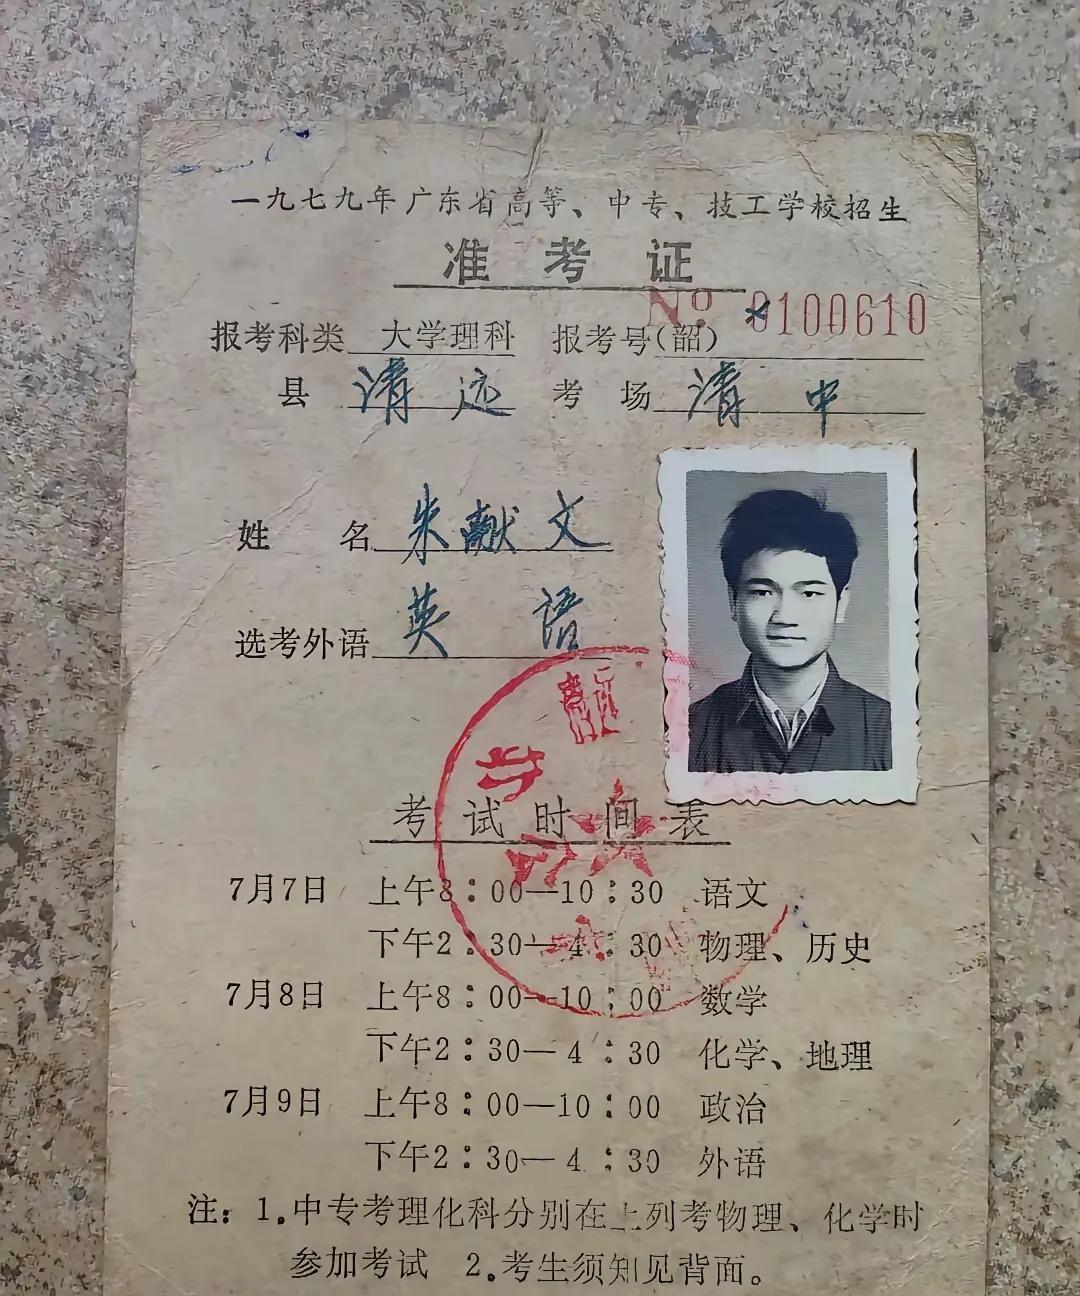 一九七九年广东省高等、中专、技工学校招生
准考证
№ 0100610
报考科类 大学理科 报考号(韶)
县 清远 考场 清中
姓名 朱献文
选考外语 英语
考试时间表
7月7日 上午8:00—10:30 语文
下午2:30—4:30 物理、历史
7月8日 上午8:00—10:00 数学
下午2:30—4:30 化学、地理
7月9日 上午8:00—10:00 政治
下午2:30—4:30 外语
注: 1.中专考理化科分别在上列考物理、化学时
参加考试 2.考生须知见背面。